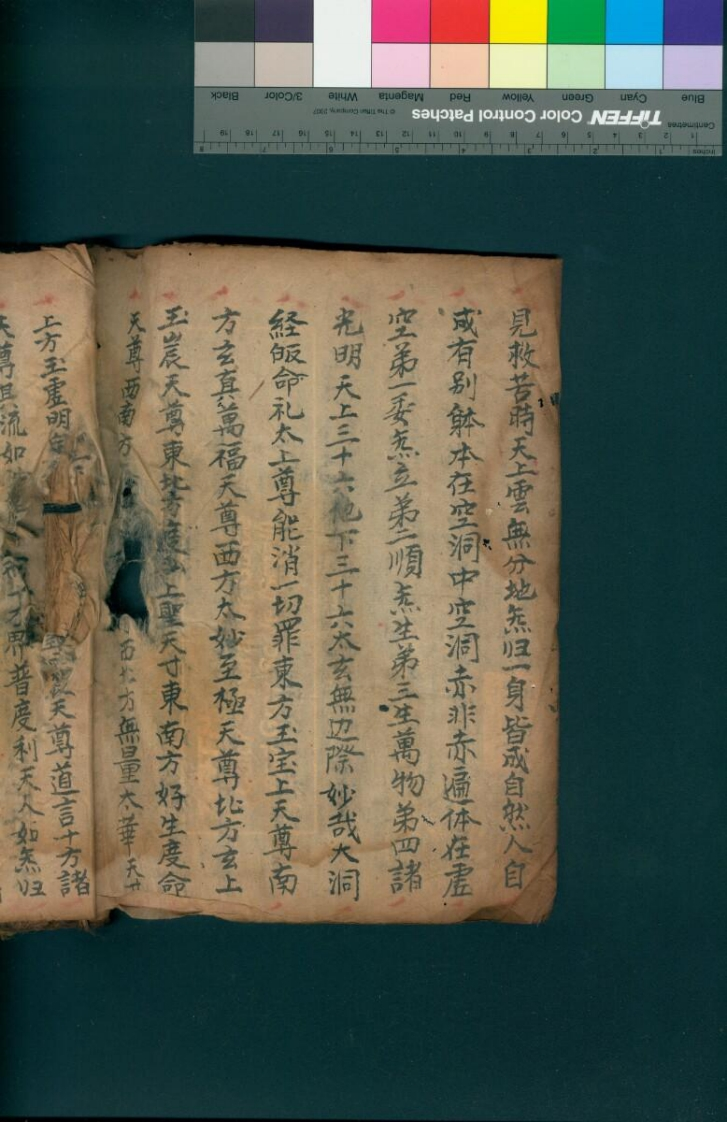 見救苦時天上雲無分地炁归一身皆成自然人自
成有别躰本在空洞中空洞赤非赤遍体在虛
空第一委炁立第二順炁生第三生萬物第四諸
光明天上三十六地下三十六太玄無边際妙哉大洞
経皈命礼太上尊能消一切罪東方玉宝上天尊南
方玄真萬福天尊西方太妙至極天尊北方玄上
玉宸天尊東北方度上聖天寸東南方好生度命
天尊西南方西北方無量太華天寸
上方玉虛明天尊道言十方諸
天尊其流如界普度利天人如炁归
Blue Cyan Green Yellow Red Magenta White 3/Color Black
TIFFEN Color Control Patches
© The Tiffen Company, 2007
Centimetres 1 2 3 4 5 6 7 8 9 10 11 12 13 14 15 16 17 18 19
Inches 1 2 3 4 5 6 7 8